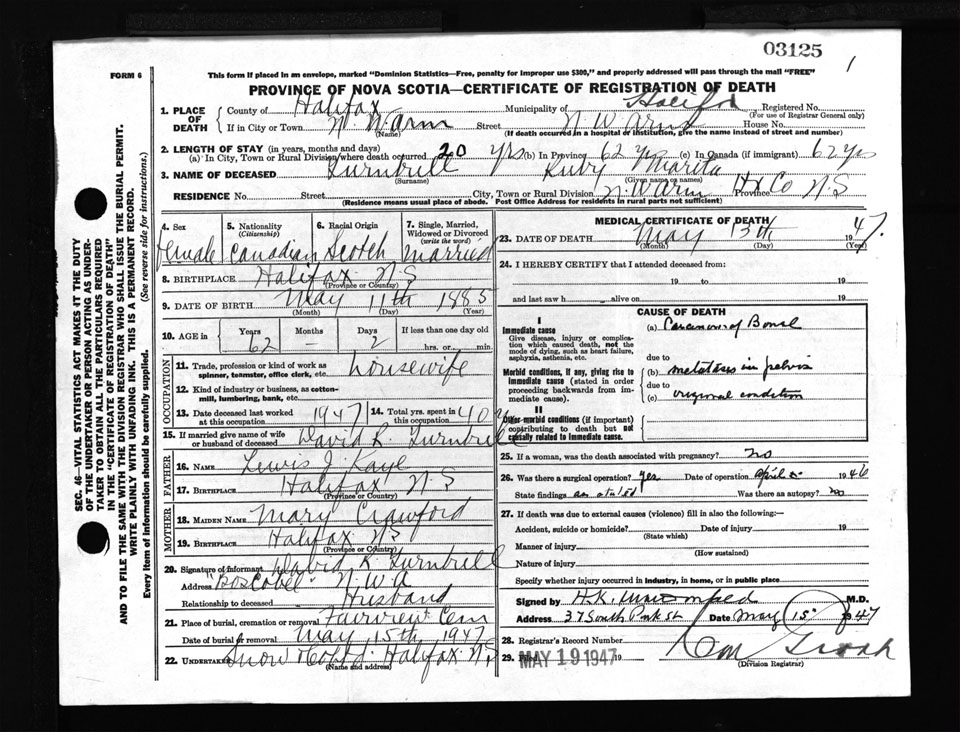 03125
1
FORM 6
This form if placed in an envelope, marked "Dominion Statistics—Free, penalty for improper use $300," and properly addressed will pass through the mail "FREE"
PROVINCE OF NOVA SCOTIA—CERTIFICATE OF REGISTRATION OF DEATH
SEC. 46—VITAL STATISTICS ACT MAKES IT THE DUTY
OF THE UNDERTAKER OR PERSON ACTING AS UNDER-
TAKER TO OBTAIN ALL THE PARTICULARS REQUIRED
IN THE "CERTIFICATE OF REGISTRATION OF DEATH"
AND TO FILE THE SAME WITH THE DIVISION REGISTRAR WHO SHALL ISSUE THE BURIAL PERMIT.
WRITE PLAINLY WITH UNFADING INK. THIS IS A PERMANENT RECORD.
Every item of information should be carefully supplied. (See reverse side for instructions.)
1. PLACE OF DEATH County of Halifax Municipality of Halifax Registered No.
(For use of Registrar General only)
If in City or Town N. W. Arm Street N. W. Arm House No.
(Name) (If death occurred in a hospital or institution, give the name instead of street and number)
2. LENGTH OF STAY (in years, months and days)
(a) In City, Town or Rural Division where death occurred 20 yrs (b) In Province 62 yrs (c) In Canada (if immigrant) 62 yrs
3. NAME OF DECEASED Turnbull Ruby Marita
(Surname) (Given name or names)
RESIDENCE No. Street City, Town or Rural Division N. W. Arm Province Hx Co N.S
(Residence means usual place of abode. Post Office Address for residents in rural parts not sufficient)
4. Sex 5. Nationality (Citizenship) 6. Racial Origin 7. Single, Married, Widowed or Divorced (write the word)
Female Canadian Scotch Married
8. BIRTHPLACE Halifax N.S
(Province or Country)
9. DATE OF BIRTH May 11th 1885
(Month) (Day) (Year)
10. AGE in Years Months Days If less than one day old
62 — 2 hrs. or min.
OCCUPATION
11. Trade, profession or kind of work as spinner, teamster, office clerk, etc. housewife
12. Kind of industry or business, as cotton-mill, lumbering, bank, etc.
13. Date deceased last worked at this occupation 1947 14. Total yrs. spent in this occupation 40 y
15. If married give name of wife or husband of deceased David R. Turnbull
FATHER
16. NAME Lewis J. Kaye
17. BIRTHPLACE Halifax N.S
(Province or Country)
MOTHER
18. MAIDEN NAME Mary Crawford
19. BIRTHPLACE Halifax N.S
(Province or Country)
20. Signature of informant David R. Turnbull
Address "Boscobel" N. W. A
Relationship to deceased Husband
21. Place of burial, cremation or removal Fairview Cem
Date of burial or removal May 15th 1947
22. UNDERTAKER Snow & Co Ltd. Halifax N.S
(Name and address)
MEDICAL CERTIFICATE OF DEATH
23. DATE OF DEATH May 13th 1947.
(Month) (Day) (Year)
24. I HEREBY CERTIFY that I attended deceased from:
19 to 19
and last saw h alive on 19
CAUSE OF DEATH
I
Immediate cause
Give disease, injury or complication which caused death, not the mode of dying, such as heart failure, asphyxia, asthenia, etc.
(a) Carcinoma of Bowel
due to
Morbid conditions, if any, giving rise to immediate cause (stated in order proceeding backwards from immediate cause).
(b) metastases in pelvis
due to
(c) original condition
II
Other morbid conditions (if important) contributing to death but not causally related to immediate cause.
25. If a woman, was the death associated with pregnancy? no
26. Was there a surgical operation? yes Date of operation april 1946
State findings as stated Was there an autopsy? no
27. If death was due to external causes (violence) fill in also the following:—
Accident, suicide or homicide? Date of injury 19
(State which)
Manner of injury
(How sustained)
Nature of injury
Specify whether injury occurred in industry, in home, or in public place
Signed by H. K. M.D.
Address 37 South Park St Date May 15 1947
28. Registrar's Record Number
29. Filed MAY 19 1947 19
(Division Registrar)